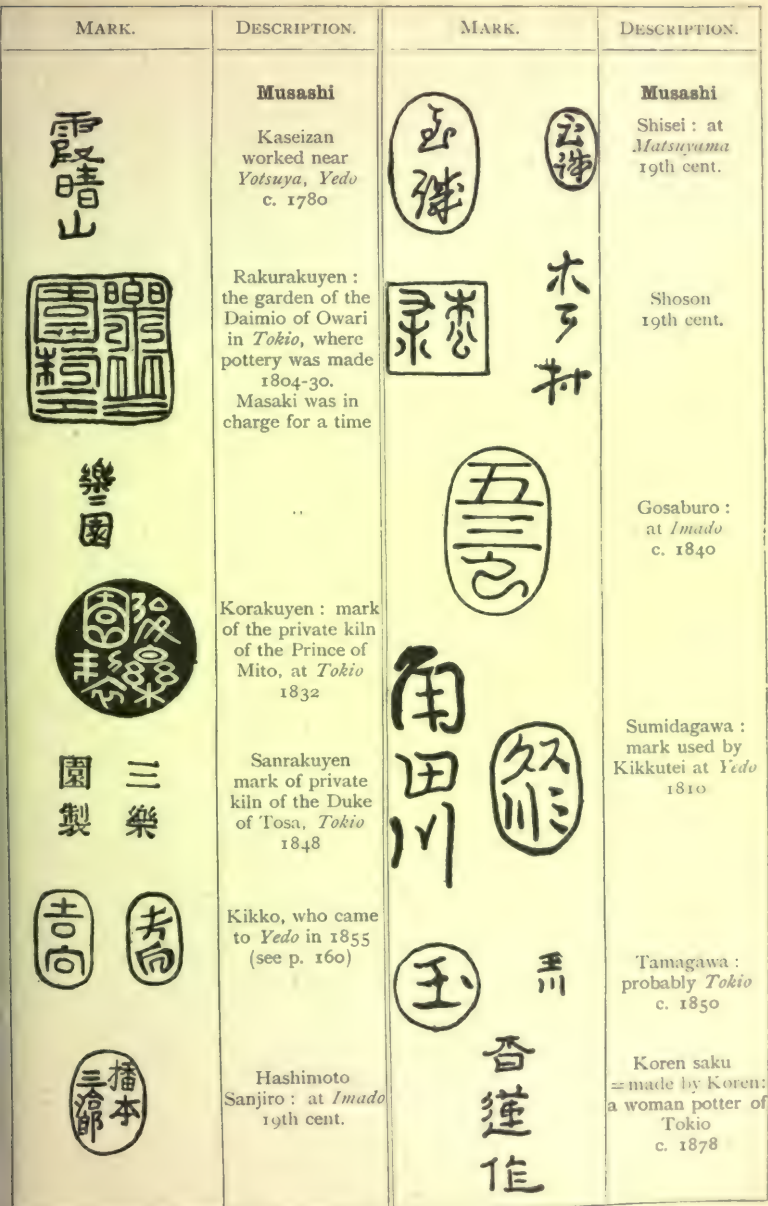 MARK.
DESCRIPTION.
霞晴山
Musashi
Kaseizan
worked near
Yotsuya, Yedo
c. 1780
Rakurakuyen :
the garden of the
Daimio of Owari
in Tokio, where
pottery was made
1804-30.
Masaki was in
charge for a time
樂二園
..
後樂
園製
Korakuyen : mark
of the private kiln
of the Prince of
Mito, at Tokio
1832
三樂
園製
Sanrakuyen
mark of private
kiln of the Duke
of Tosa, Tokio
1848
吉向
吉向
Kikko, who came
to Yedo in 1855
(see p. 160)
Hashimoto
Sanjiro : at Imado
19th cent.
MARK.
DESCRIPTION.
Musashi
Shisei : at
Matsuyama
19th cent.
Shoson
19th cent.
五三
Gosaburo :
at Imado
c. 1840
角田川
Sumidagawa :
mark used by
Kikkutei at Yedo
1810
玉
玉川
Tamagawa :
probably Tokio
c. 1850
香蓮作
Koren saku
=made by Koren:
a woman potter of
Tokio
c. 1878